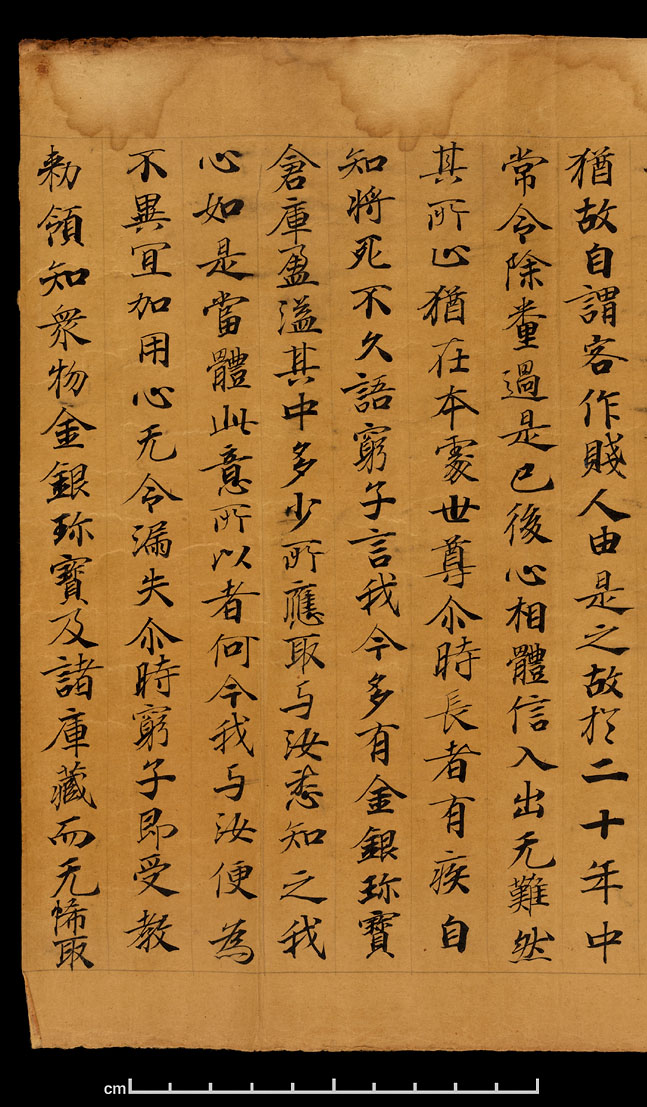 猶故自謂客作賤人由是之故於二十年中
常令除糞過是已後心相體信入出无難然
其所止猶在本處世尊尒時長者有疾自
知將死不久語窮子言我今多有金銀珎寶
倉庫盈溢其中多少所應取与汝悉知之我
心如是當體此意所以者何今我与汝便為
不異冝加用心无令漏失尒時窮子即受教
勑領知衆物金銀珎寶及諸庫藏而无悕取
cm